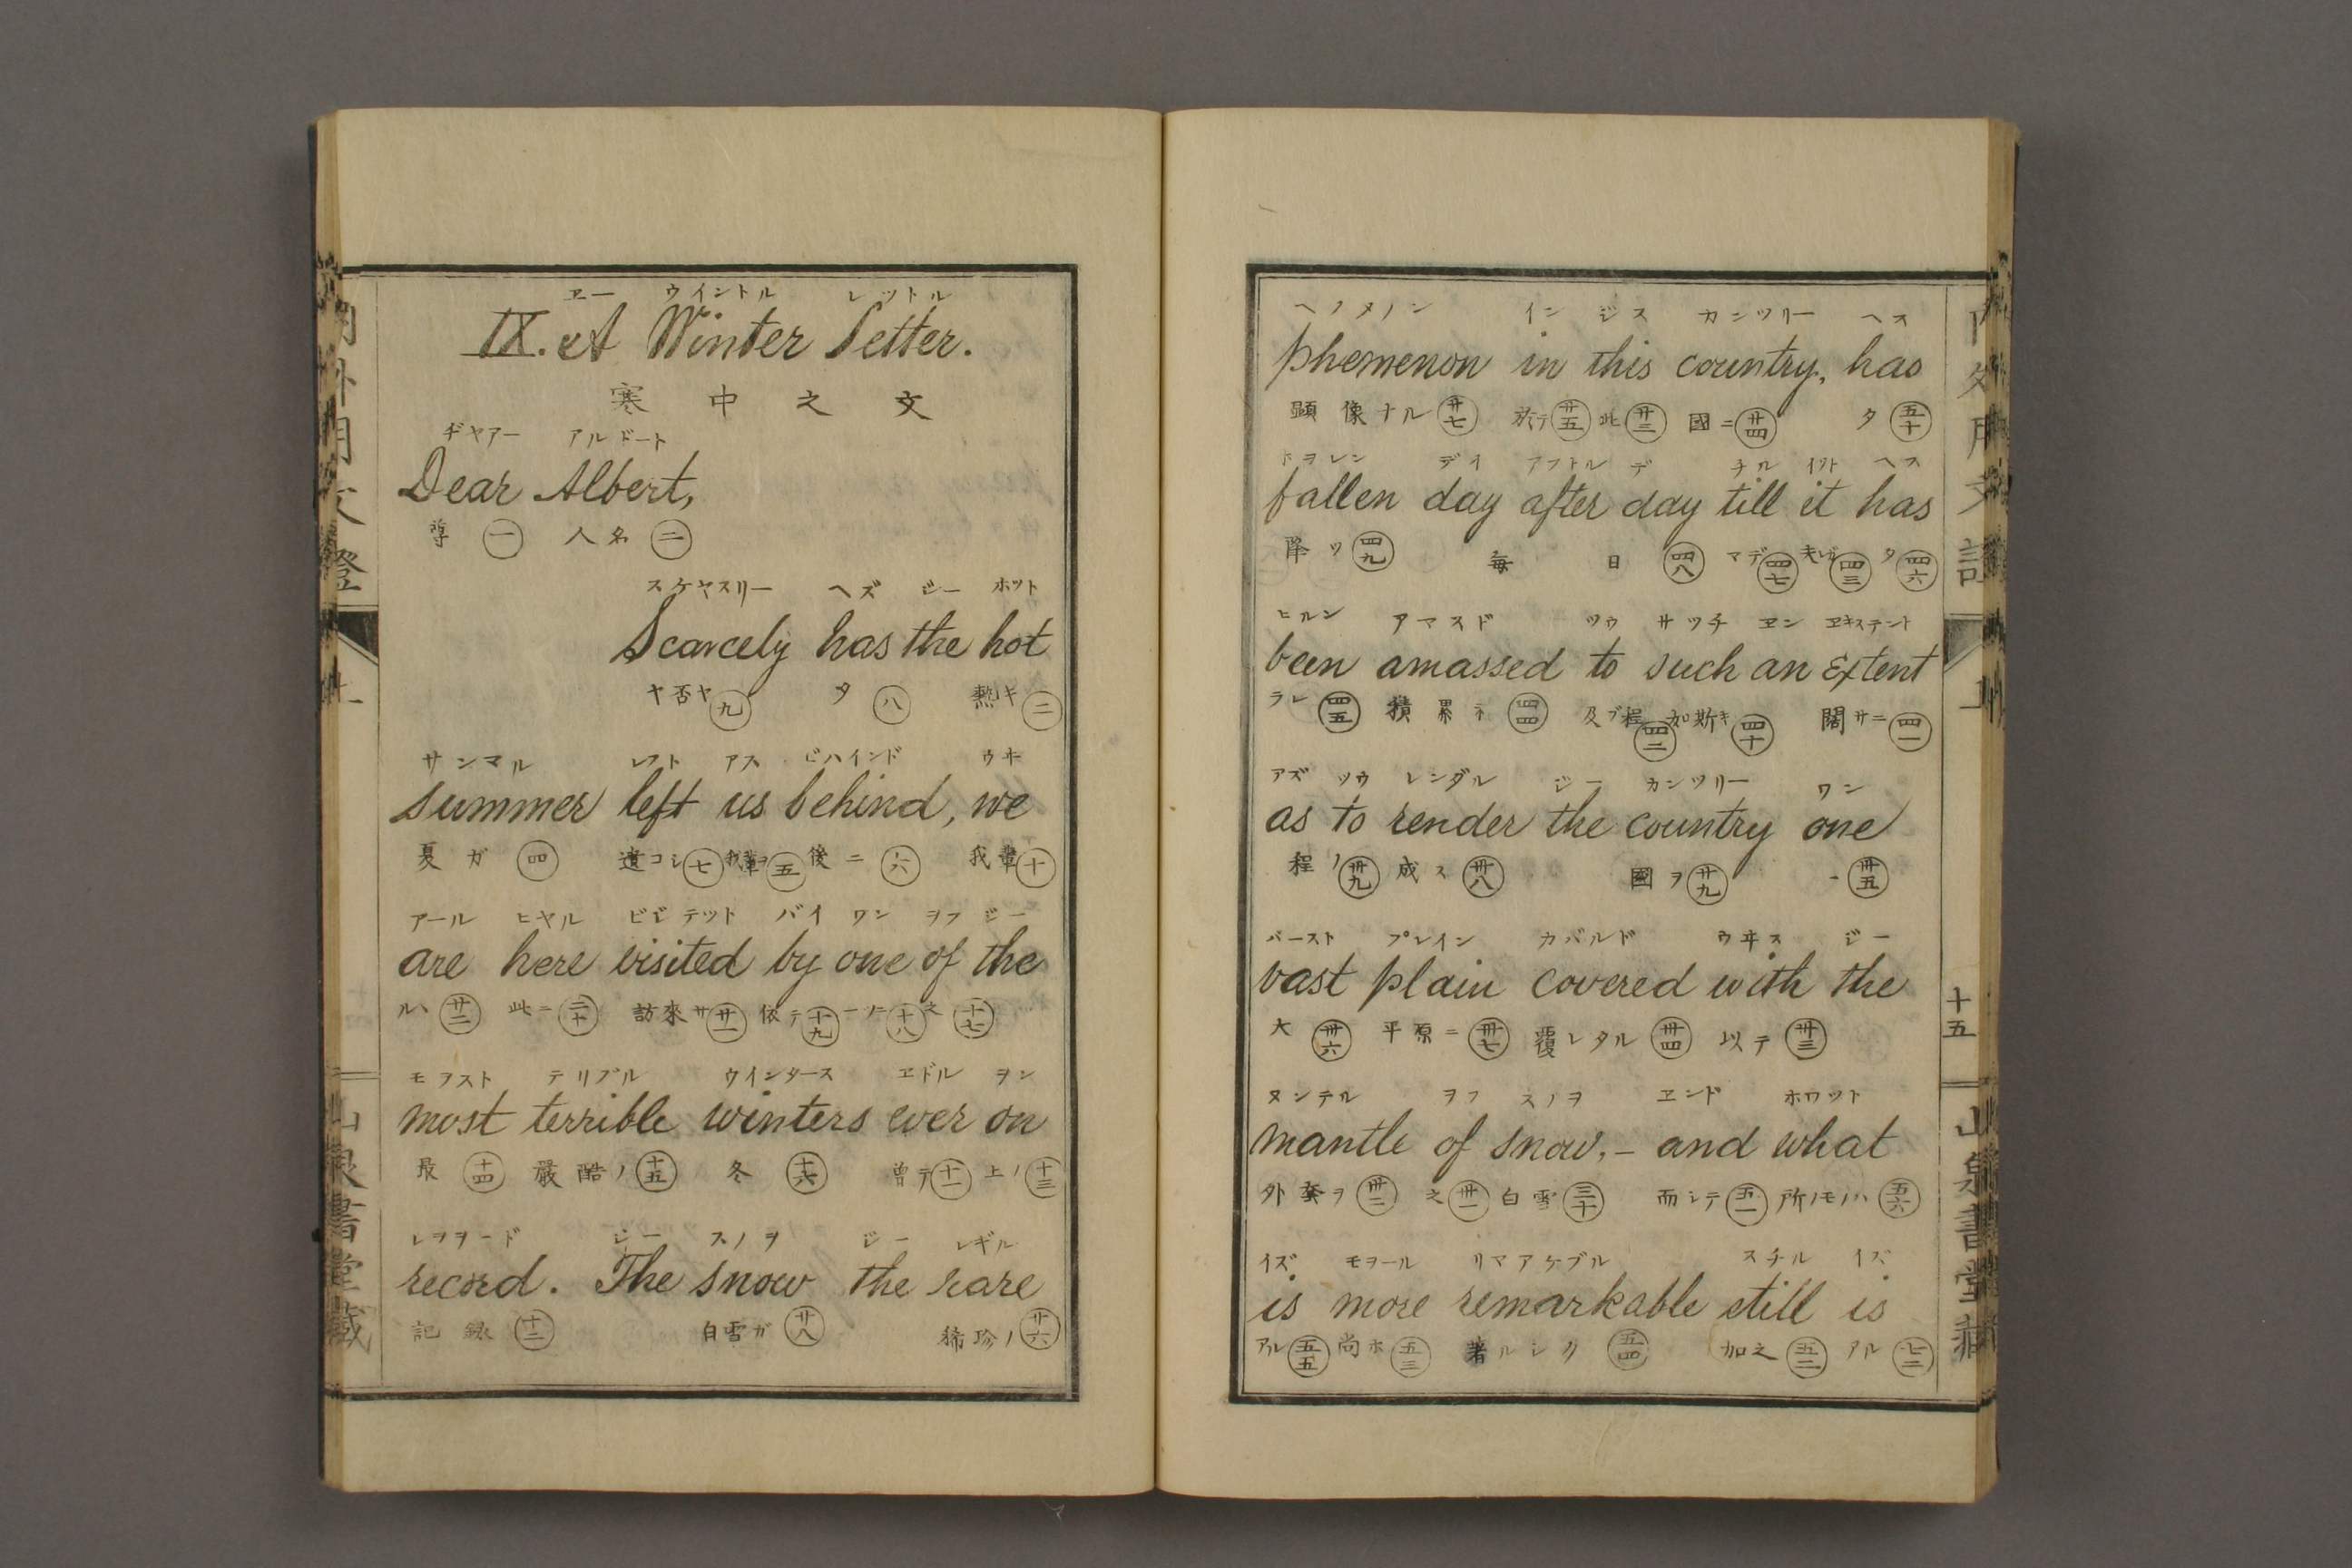 ヱー ウイントル レットル
IX. A Winter Letter.
寒中之文
ヂヤアー アルドート
Dear Albert,
尊 一 人名 二
スケヤスリー ヘズ ジー ホツト
Scarcely has the hot
ヤ否ヤ 九 タ 八 熱キ 二
サンマル レフト アス ビハインド ウヰ
summer left us behind, we
夏ガ 四 遺コシ 七 我輩ヲ 五 後ニ 六 我輩 十
アール ヒヤル ビジテット バイ ワン ヲフ ジー
are here visited by one of the
ルハ 廿二 此ニ 二十 訪來サ 廿一 依テ 十九 一ツニ 十八 之 十七
モヲスト テリブル ウインタース ヱドル ヲン
most terrible winters ever on
最 十四 嚴酷ノ 十五 冬 十六 曽テ 十一 上ノ 十三
レヲヲード ジー スノヲ ジー レギル
record. The snow the rare
記録 十二 白雪ガ 廿八 稀珍ノ 廿六
ヘノメノン イン ジス カンツリー ヘス
phemenon in this country, has
顕像ナル 廿七 於テ 廿五 此 廿三 國ニ 廿四 タ 五十
ホヲレン デイ アフトル デ チル イツト ヘス
fallen day after day till it has
降ツ 四九 毎日 四八 マデ 四七 夫レガ 四三 タ 四六
ヒルン アマスド ツウ サツチ ヱン ヱキステント
been amassed to such an extent
ラレ 四五 積累子 四四 及ブ程 四二 如斯キ 四十 闊サニ 四一
アズ ツウ レンダル ジー カンツリー ワン
as to render the country one
程ノ 卅九 成ス 卅八 國ヲ 卅九 一 卅五
バースト プレイン カバルド ウヰス ジー
vast plain covered with the
大 卅六 平原ニ 卅七 覆レタル 卅四 以テ 卅三
ヌンテル ヲフ スノヲ ヱンド ホワット
mantle of snow,– and what
外套ヲ 卅二 之 卅一 白雪 三十 而シテ 五一 所ノモノハ 五六
イズ モヲール リマアケブル スチル イズ
is more remarkable still is
アル 五五 尚ホ 五三 著ルシク 五四 加之 五二 アル 七二
十五